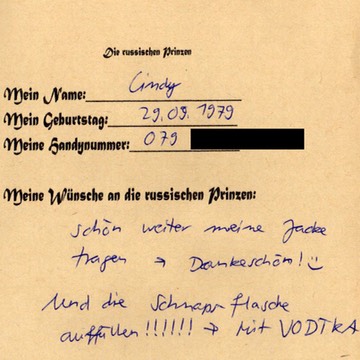 Die russischen Prinzen
Mein Name: Cindy
Mein Geburtstag: 29.09.1979
Meine Handynummer: 079
Meine Wünsche an die russischen Prinzen:
schön weiter meine Jacke
tragen → Dankeschön! ☺
Und die Schnapsflasche
auffüllen!!!!!! → Mit VODTKA